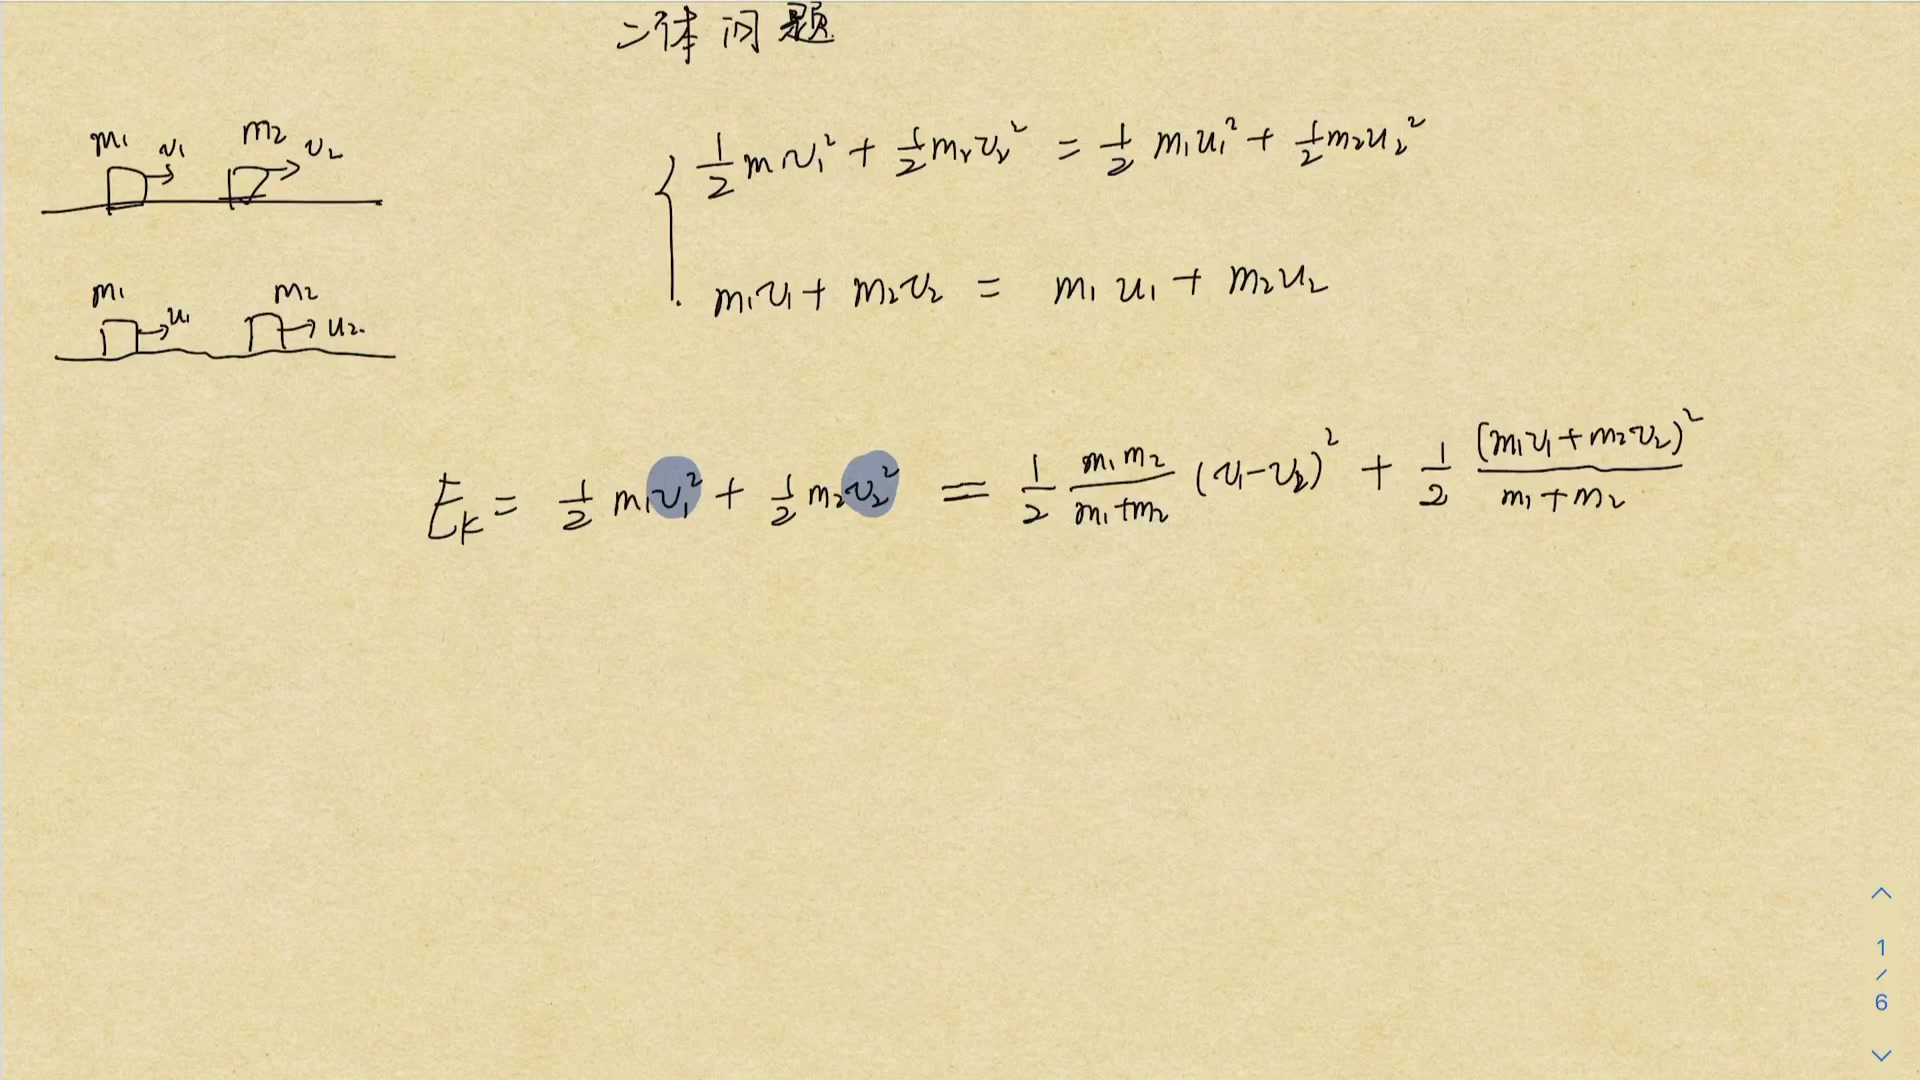 二体问题
m1 v1 m2 v2
½ m v₁² + ½ m₂v₂² = ½ m₁u₁² + ½ m₂u₂²
m₁v₁ + m₂v₂ = m₁u₁ + m₂u₂
m1 u1 m2 u2.
E_k = ½ m₁v₁² + ½ m₂v₂² = ½ (m₁m₂)/(m₁+m₂) (v₁-v₂)² + ½ (m₁v₁+m₂v₂)²/(m₁+m₂)
1
/
6